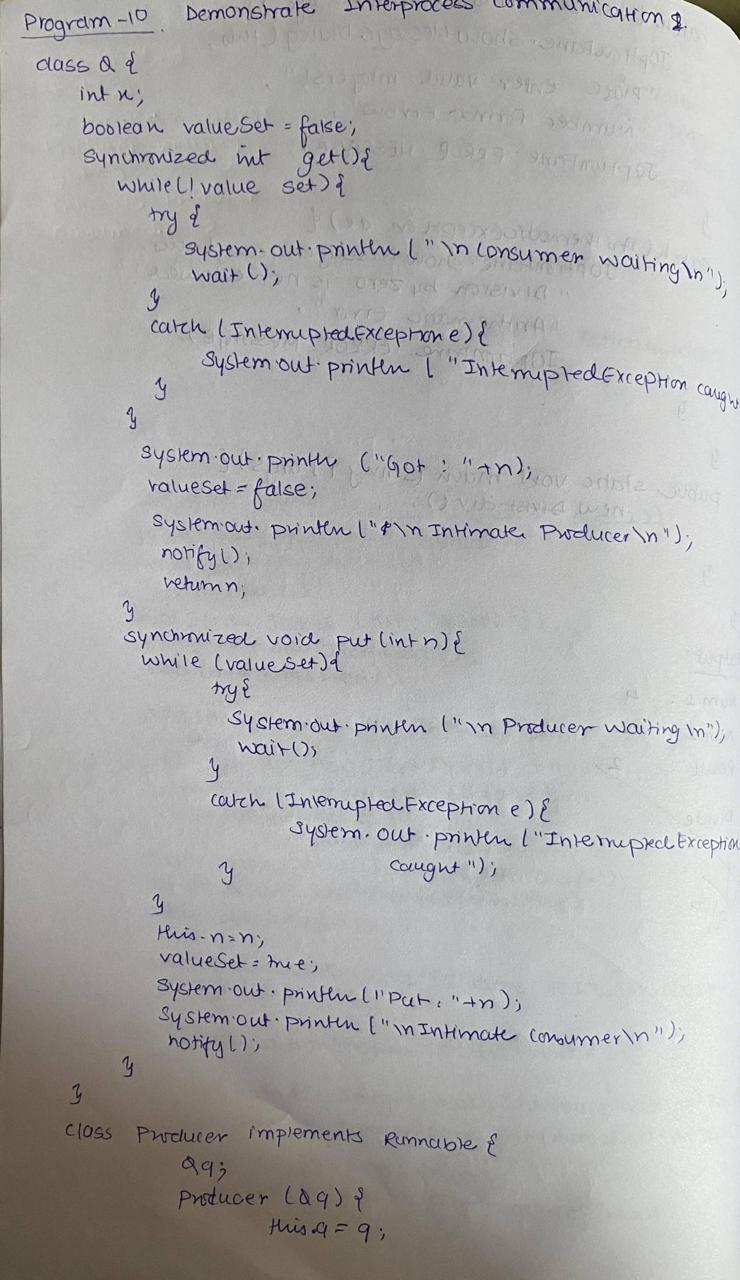 Program -10. Demonstrate Interprocess Communication
class Q {
int n;
boolean valueSet = false;
synchronized int get(){
while(! value set){
try {
system.out.println ("\n Consumer waiting\n");
wait ();
}
catch (InterruptedException e){
System.out.println ("InterruptedException caugh
}
}
system.out.println ("Got : "+n);
valueSet = false;
system.out.println ("\n Intimate Producer\n");
notify();
return n;
}
synchronized void put (int n){
while (valueSet){
try{
System.out.println ("\n Producer Waiting \n");
wait();
}
catch (InterruptedException e){
System.out.println ("InterruptedException
caught ");
}
}
this.n=n;
valueSet = true;
System.out.println ("Put : "+n);
System.out.println ("\n Intimate Consumer\n");
notify();
}
}
class Producer implements Runnable {
Q q;
Producer (Q q) {
this.q = q;